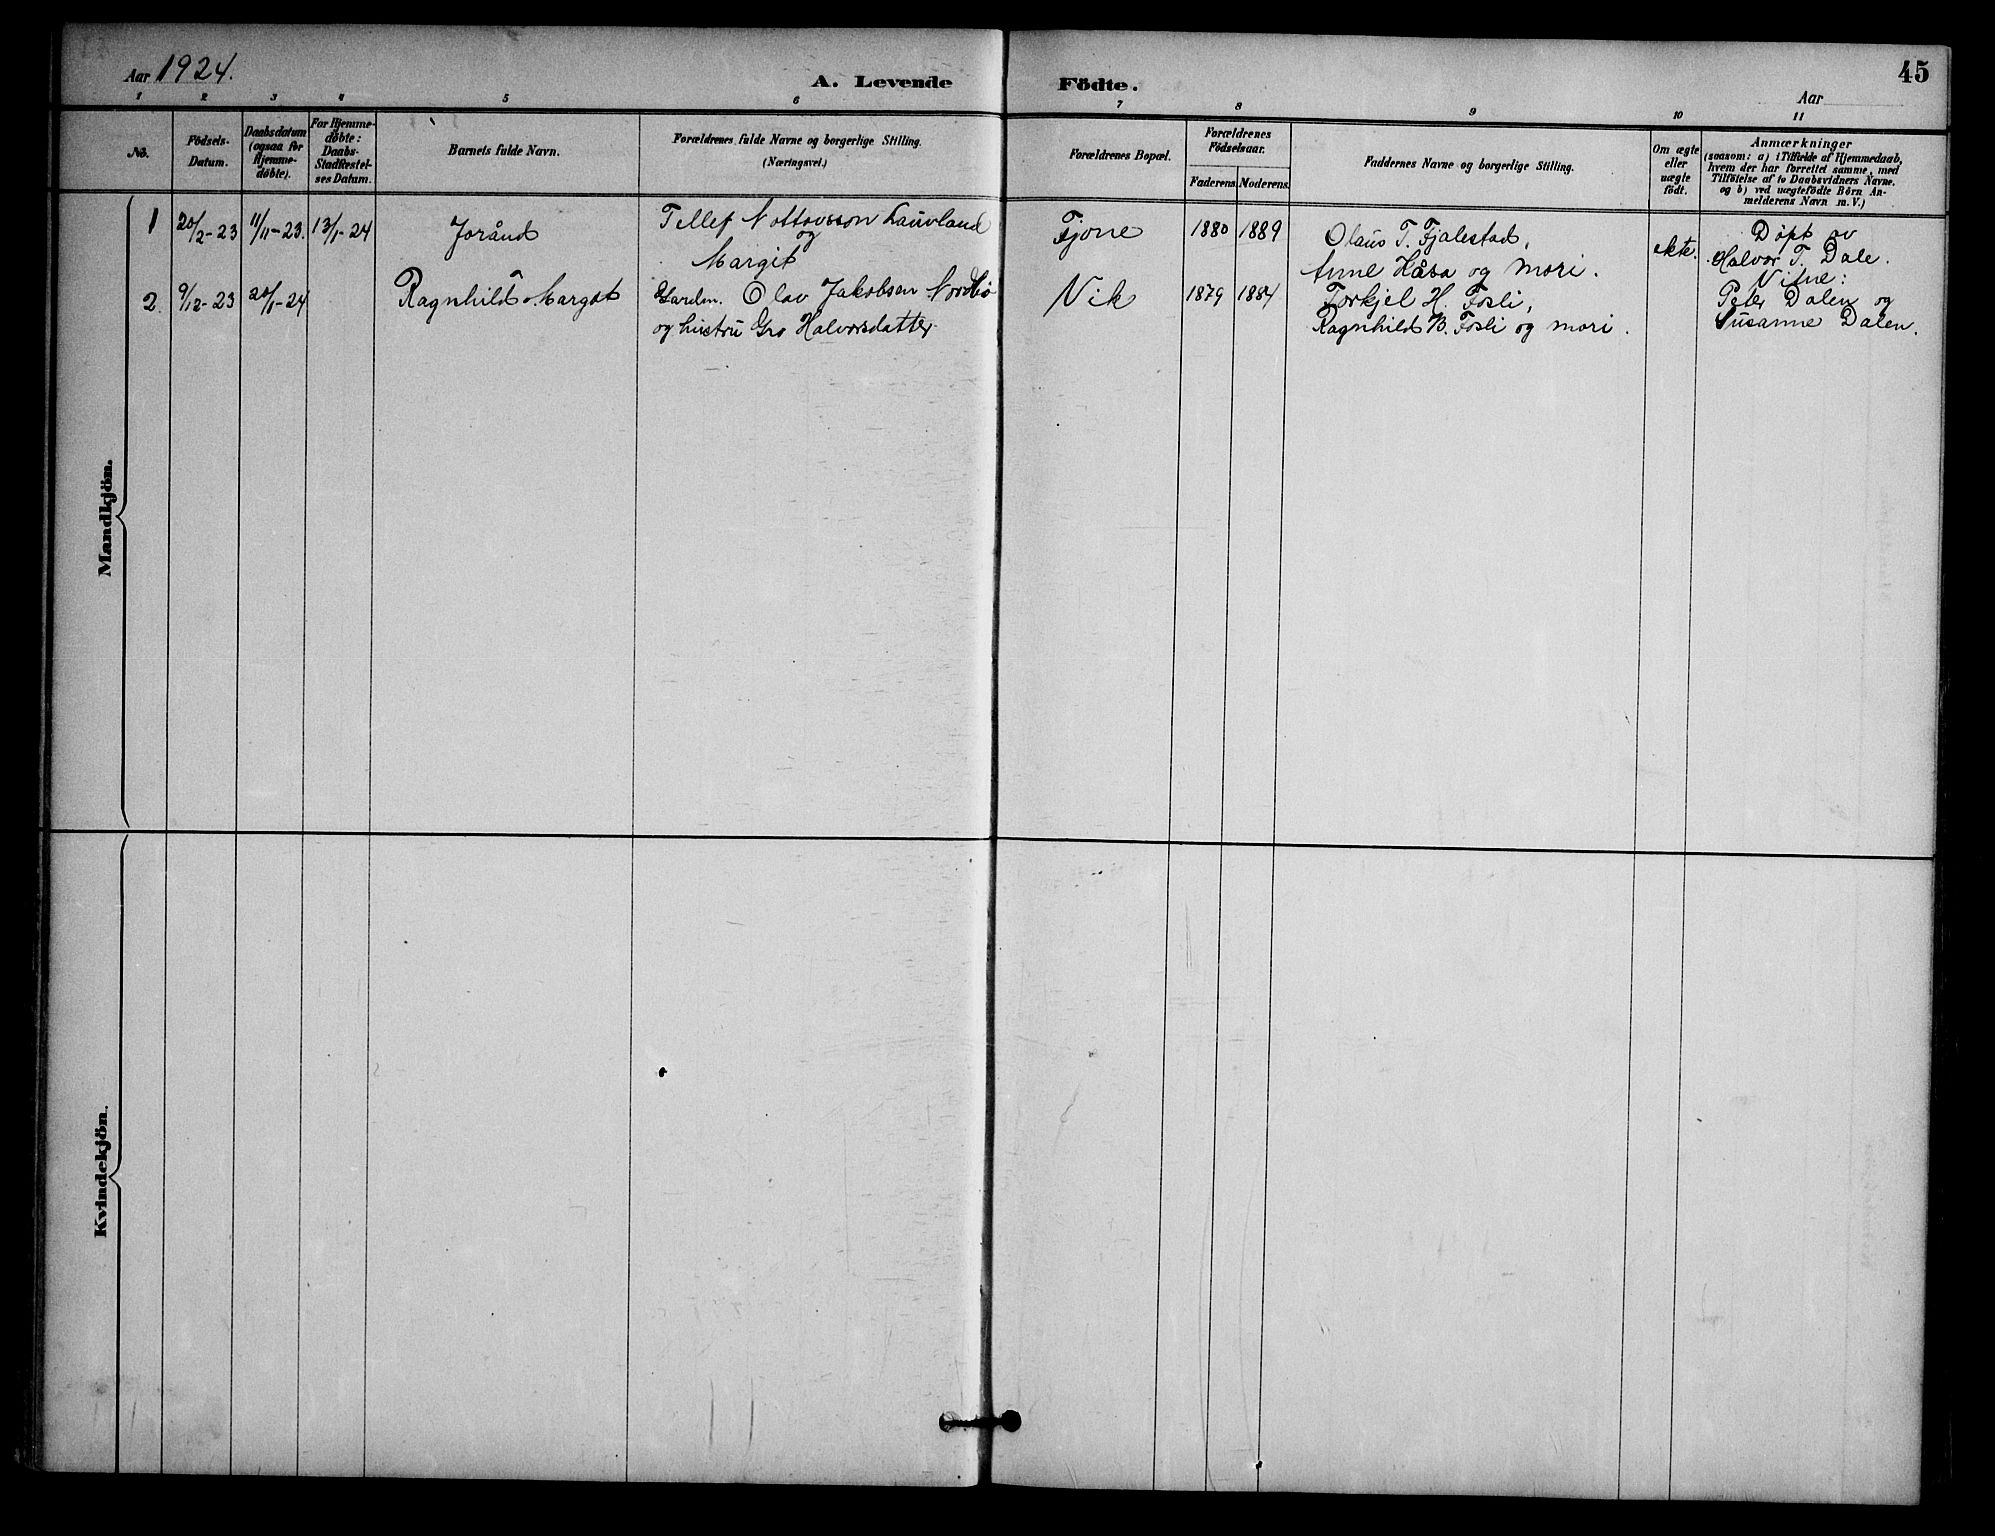 Aar 1924.
A. Levende Födte.
45
Aar
1 2 3 4 5 6 7 8 9 10 11
No.
Födsels-
Datum.
Daabsdatum
(ogsaa for
Hjemme-
döbte).
For Hjemme-
döbte:
Daabs-
Stadfestel-
ses Datum.
Barnets fulde Navn.
Forældrenes fulde Navne og borgerlige Stilling.
(Næringsvei.)
Forældrenes Bopæl.
Forældrenes
Födselsaar.
Faderens. Moderens.
Faddernes Navne og borgerlige Stilling.
Om ægte
eller
uægte
födt.
Anmærkninger
(saasom: a) i Tilfælde af Hjemmedaab,
hvem der har forrettet samme, med
Tilföielse af to Daabsvidners Navne.
og b) ved uægtefödte Börn An-
melderens Navn m. V.)
Mandkjön.
1 20/2-23 11/11-23. 13/1-24 Joránd
Tellef Nottovsson Lauvland
og
Margit
Fjone 1880 1889
Olaus T. Fjalestad,
Anne Håsa og mori.
ekte.
Döpt av
Halvor T. Dale.
Vitne:
Peter Dalen og
Susanne Dalen.
2. 9/12-23 20/1-24 Ragnhild Margot
Garden. Olav Jakobsen Nordbö
og hustru Gro Halvorsdatter
Vik 1879 1884
Torkjel H. Fosli,
Ragnhild B. Fosli og mori.
Kvindekjön.